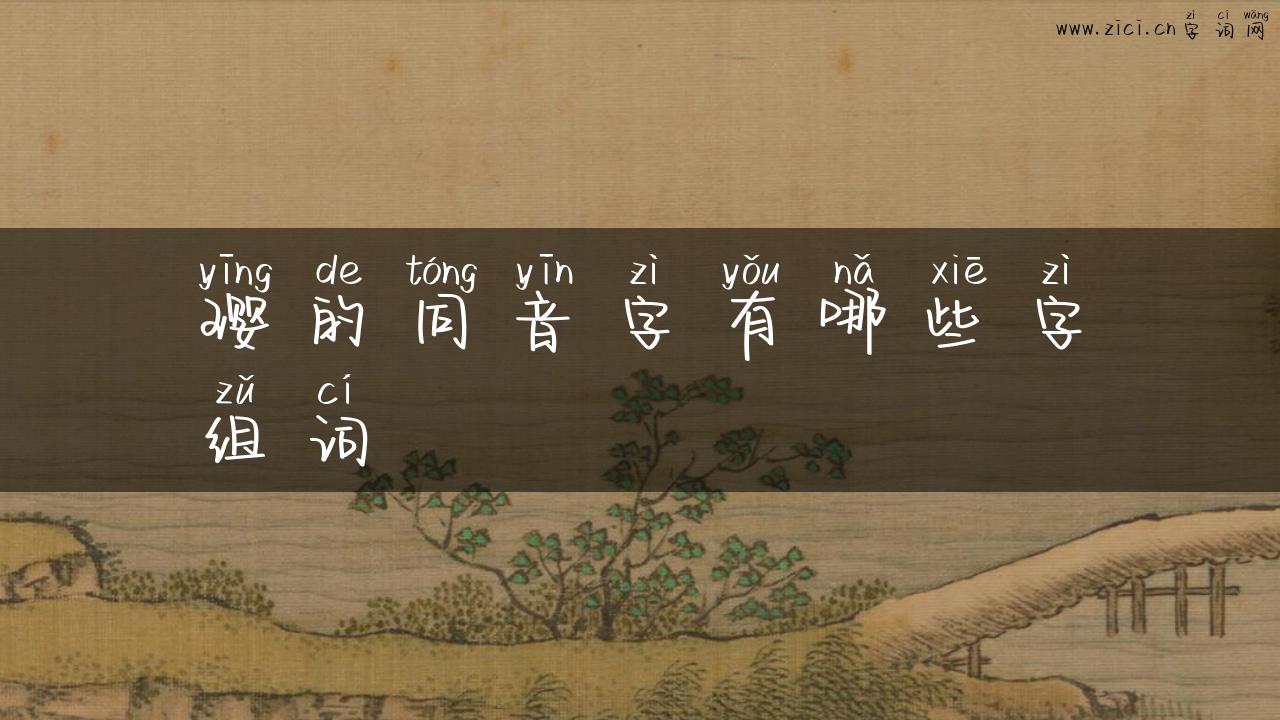 www.zici.cn zì cí wǎng
字词网
yīng de tóng yīn zì yǒu nǎ xiē zì
璎的同音字有哪些字
zǔ cí
组词